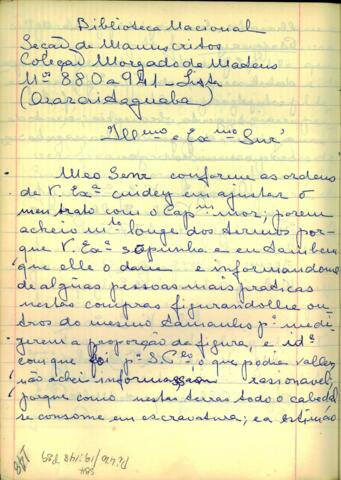 Biblioteca Nacional
Secção de Manuscritos
Coleção Morgado de Mateus
Nos 880 a 941 - Lista
(Araraitaguaba)
"Illmo e Exmo Snr"
Meo Senr conforme as ordens
de V. Exa cuidey em ajustar o
meu trato com o Capm mor; porem
acheio mto longe dos termos por-
que V. Exa supunha e eu tambem
que elle o dava e informandome
de algũas pessoas mais praticas
nestas compras figurandolhe ou-
tros do mesmo tamanho pa me di-
zerem a proporção da figura, e ide
com que foi pa S. Plo, o que podia valler,
não achei informassam rassonavel,
porque como nestas terras todo o cabedal
se consome em escravatura; e a estimão
148